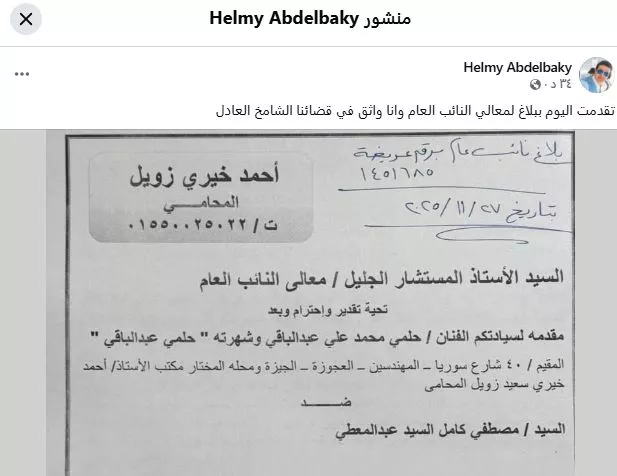 منشور Helmy Abdelbaky
Helmy Abdelbaky
٣٤ د ·
تقدمت اليوم ببلاغ لمعالي النائب العام وانا واثق في قضائنا الشامخ العادل
بلاغ نائب عام برقم عريضة
١٤٥١٦٨٥
بتاريخ ٢٠٢٥/١١/٢٧
أحمد خيري زويل
المحامــي
ت / ٠١٥٥٠٠٢٥٠٢٢
السيد الأستاذ المستشار الجليل / معالى النائب العام
تحية تقدير وإحترام وبعد
مقدمه لسيادتكم الفنان / حلمي محمد علي عبدالباقي وشهرته " حلمي عبدالباقي "
المقيم / ٤٠ شارع سوريا – المهندسين – العجوزة – الجيزة ومحله المختار مكتب الأستاذ/ أحمد
خيري سعيد زويل المحامى
ضــــد
السيد / مصطفي كامل السيد عبدالمعطي